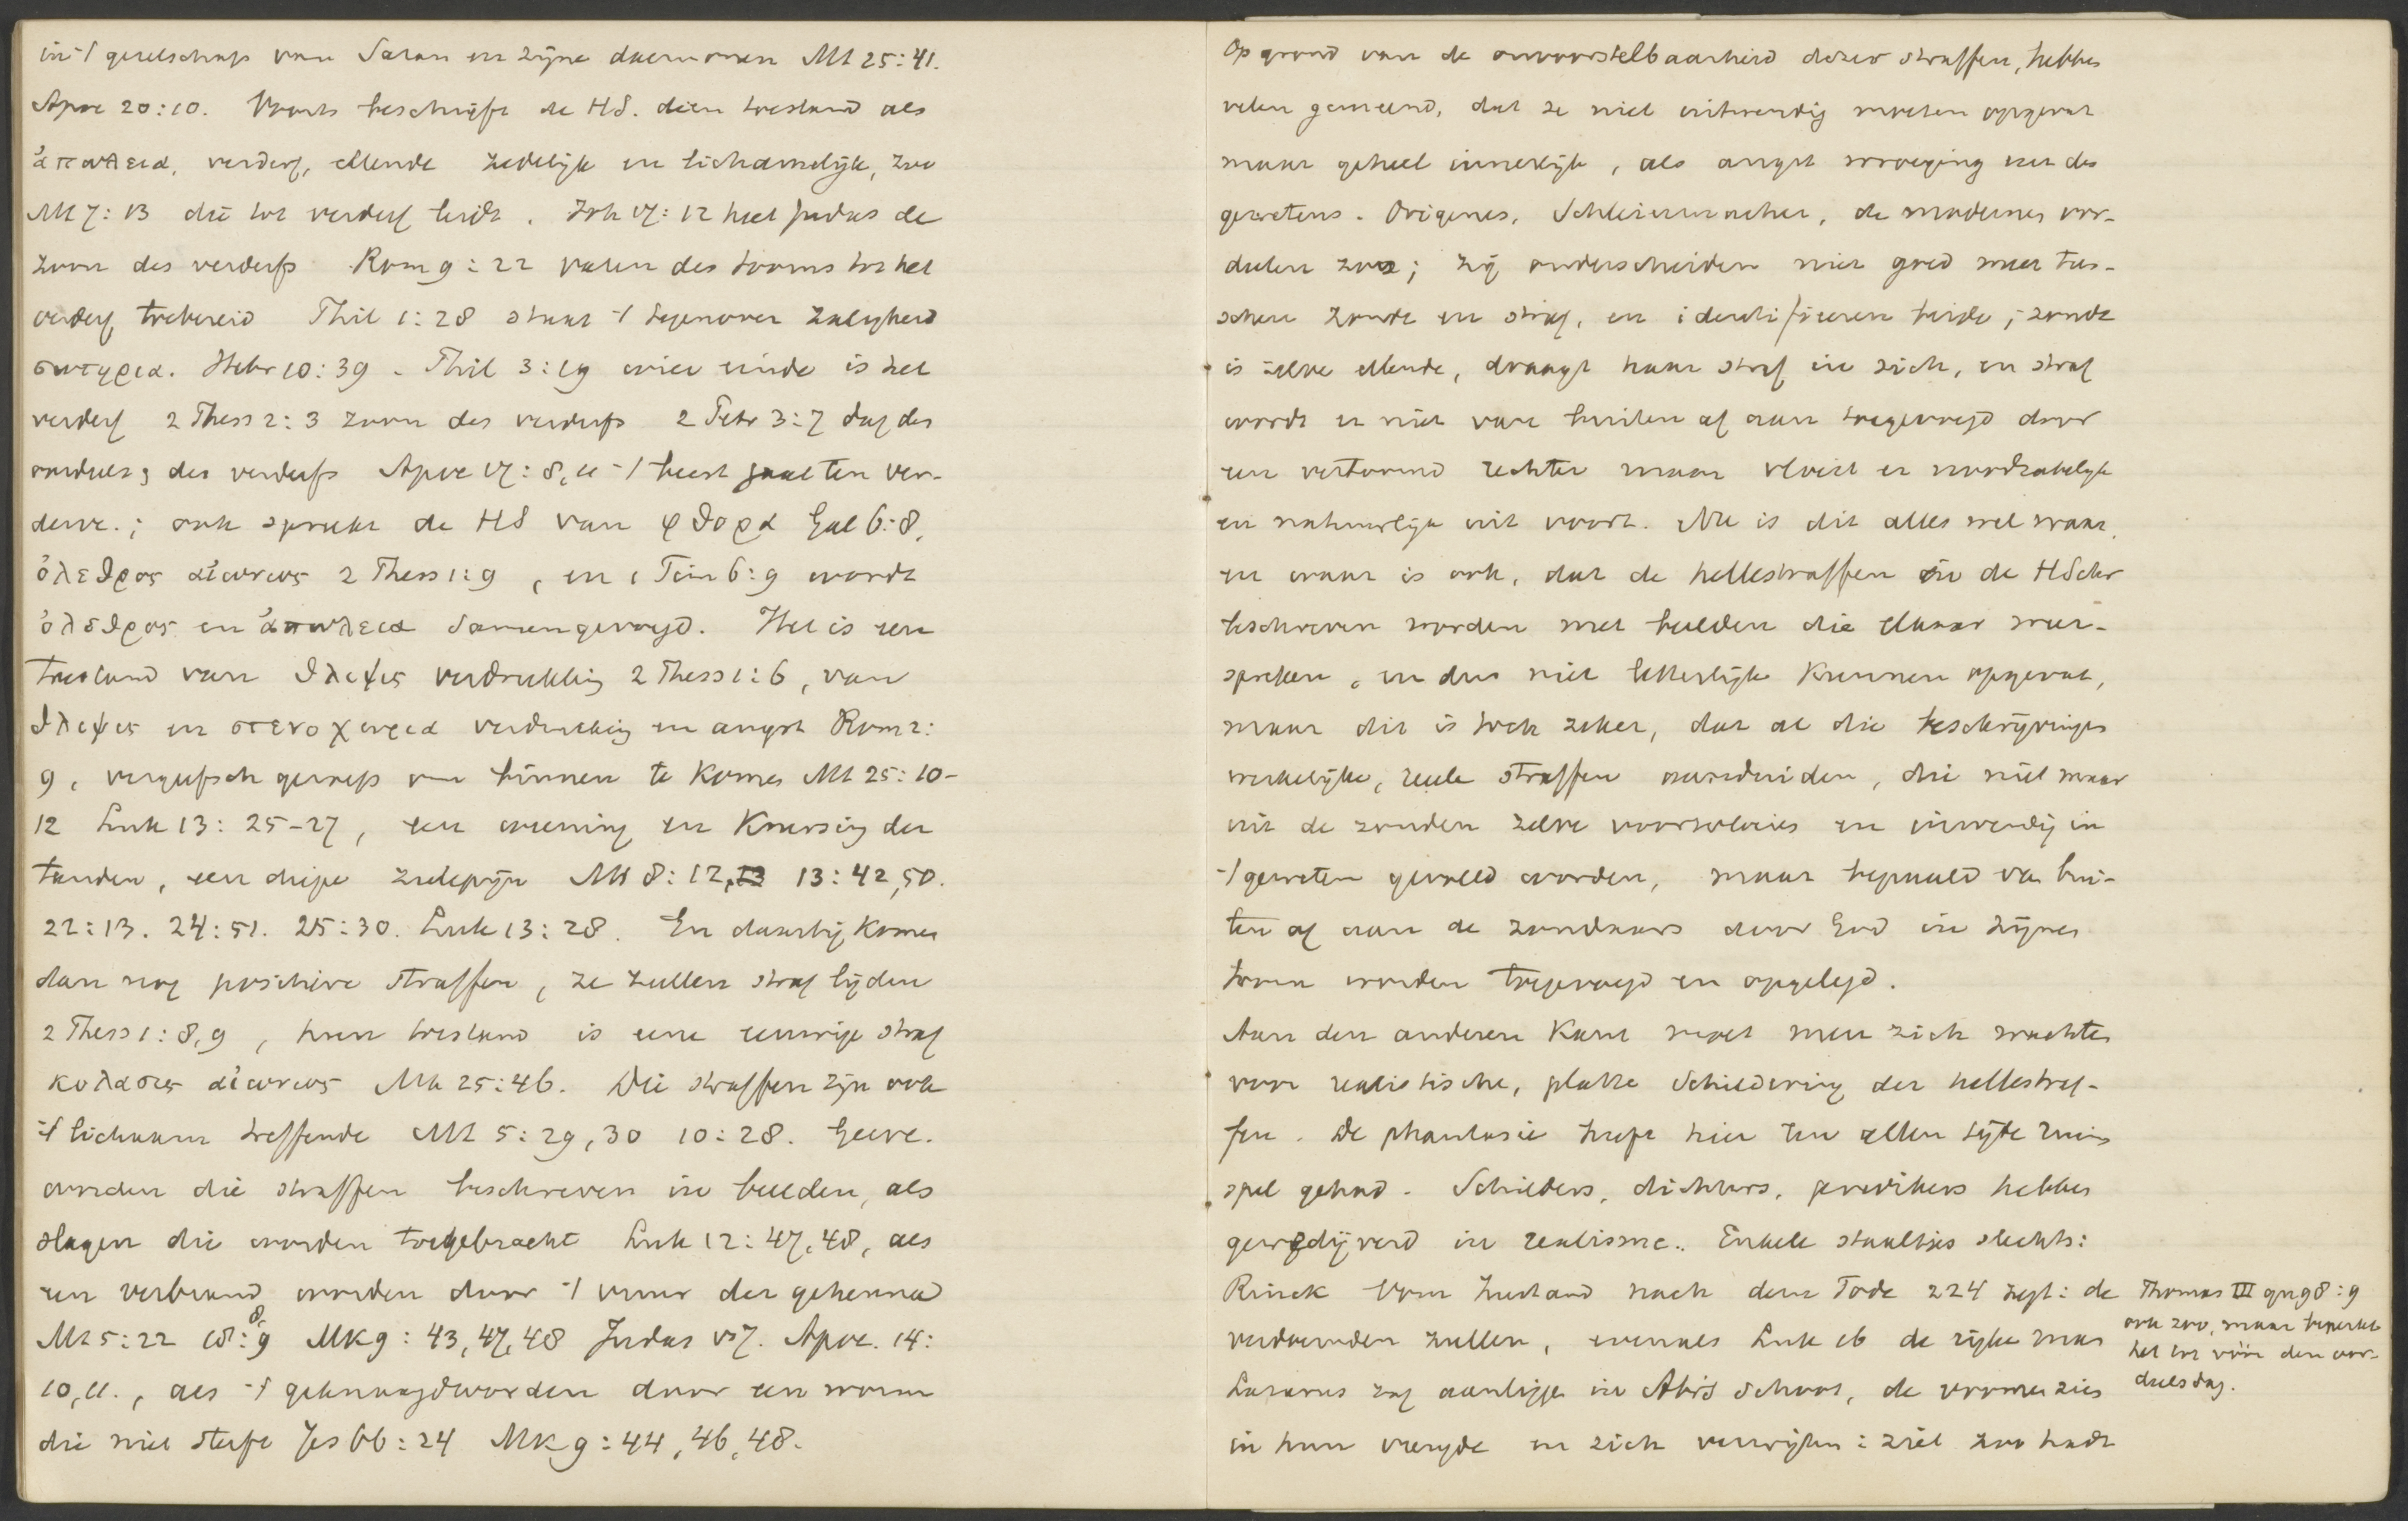 in 't gezelschap van Satan en zijne daemonen Mt 25:41.
Apoc 20:10. Voorts beschrijft de HS. dien toestand als
ἀπωλεια, verderf, ellende zedelijk en lichamelijk, zoo
Mt 7:13 die tot verderf leidt. Joh 17:12 heet Judas de
zoon des verderfs Rom 9:22 vaten des toorns tot het
verderf toebereid Phil 1:28 staat 't tegenover zaligheid
σωτηρια. Hebr 10:39. Phil 3:19 wier einde is het
verderf 2 Thess 2:3 zoon des verderfs 2 Petr 3:7 dag des
oordeels des verderfs Apoc 17:8,11 't beest gaat ten ver-
derve.; ook spreekt de HS van φθορα Gal 6:8,
ὀλεθρος αἰωνιος 2 Thess 1:9, en 1 Tim 6:9 wordt
ὀλεθρος en ἀπωλεια samengevoegd. Het is een
toestand van θλιψις verdrukking 2 Thess 1:6, van
θλιψις en στενοχωρια verdrukking en angst Rom 2:
9, vergeefsch geroep om binnen te komen Mt 25:10-
12 Luk 13:25-27, een weening en knersing der
tanden, een diepe zielepijn Mt 8:12, 13:42,50.
22:13. 24:51. 25:30. Luk 13:28. En daarbij komen
dan nog positieve straffen, ze zullen straf lijden
2 Thess 1:8,9, hun toestand is eene eeuwige straf
κολασις αἰωνιος Mt 25:46. Die straffen zijn ook
't lichaam treffende Mt 5:29,30 10:28. Geeve.
worden die straffen beschreven in beelden, als
slagen die worden toegebracht Luk 12:47,48, als
een verbrand worden door 't vuur der gehenna
Mt 5:22 18:8,9 Mk 9:43,47,48 Judas vs 7. Apoc. 14:
10,11., als 't geknaagdworden door een worm
die niet sterft Jes 66:24 Mk 9:44,46,48.
Op grond van de onvoorstelbaarheid dezer straffen, hebben
velen gemeend, dat ze niet uitwendig moeten opgevat
maar geheel innerlijk, als angst wroeging enz des
gewetens. Origenes, Schleiermacher, de modernen oor-
deelen zoo; zij onderscheiden niet goed meer tus-
schen zonde en straf, en identificeeren beide; zonde
is zelve ellende, draagt haar straf in zich, en straf
wordt er niet van buiten af aan toegevoegd door
een vertoornd rechter maar vloeit er noodzakelijk
en natuurlijk uit voort. Nu is dit alles wel waar,
en waar is ook, dat de hellestraffen in de HSchr
beschreven worden met beelden die elkaar weer-
spreken, en dus niet letterlijk kunnen opgevat,
maar dit is toch zeker, dat al die beschrijvingen
werkelijke, reële straffen aanduiden, die niet maar
uit de zonden zelve voortvloeien en inwendig in
't geweten gevoeld worden, maar bepaald van bui-
ten af aan de zondaars door God in Zijnen
toorn worden toegevoegd en opgelegd.
Aan den anderen kant moet men zich wachten
voor realistische, platte schildering der hellestraf-
fen. De phantasie heeft hier ten allen tijde ruim
spel gehad. Schilders, dichters, predikers hebben
gewedijverd in realisme.. Enkele staaltjes slechts:
Rinck Vom Zustand nach dem Tode 224 zegt: de
verdoemden zullen, evenals Luk 16 de rijke man
Lazarus zag aanliggen in Abr's schoot, de vromen zien
in hun vreugde en zich verwijten: ziet zoo hadt
Thomas III qu 98:9
ook zoo, maar beperkt
het tot vóór den oor-
deelsdag.